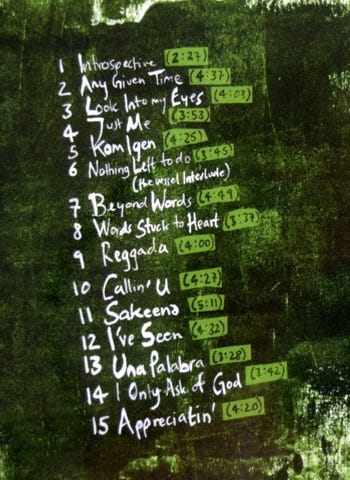 1 Introspective (2:27)
2 Any Given Time (4:37)
3 Look Into my Eyes (4:03)
4 Just Me (3:53)
5 Kom Igen (4:25)
6 Nothing Left to do (3:45)
(the vessel Interlude)
7 Beyond Words (4:49)
8 Words Stuck to Heart (3:37)
9 Reggada (4:00)
10 Callin' U (4:27)
11 Sakeena (5:11)
12 I've Seen (4:32)
13 Una Palabra (3:28)
14 I Only Ask of God (3:42)
15 Appreciatin' (4:20)